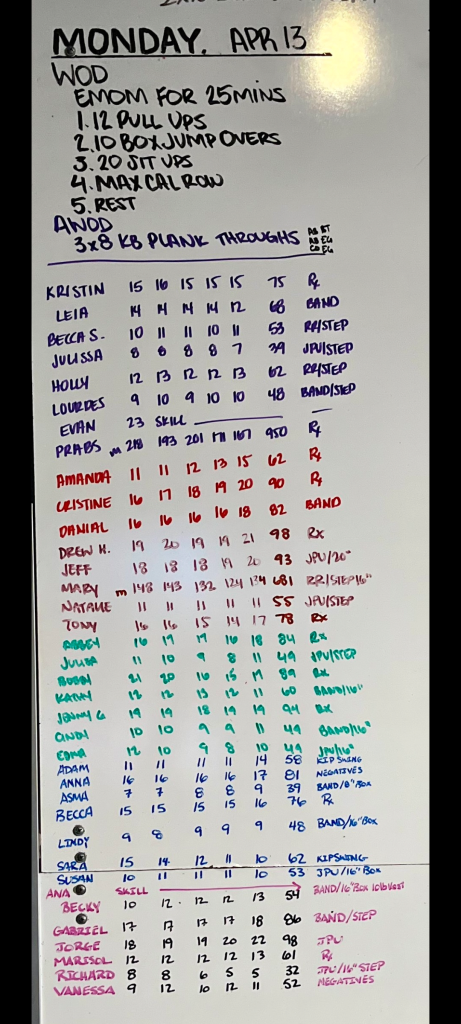 MONDAY. APR 13
WOD
EMOM FOR 25 MINS
1. 12 PULL UPS
2. 10 BOX JUMP OVERS
3. 20 SIT UPS
4. MAX CAL ROW
5. REST
AWOD
3x8 KB PLANK THROUGHS
KRISTIN 15 16 15 15 15 75 Rx
LEIA 14 14 14 14 12 68 BAND
BECCA S. 10 11 11 10 11 53 RR/STEP
JULISSA 8 8 8 8 7 39 JPU/STEP
HOLLY 12 13 12 12 13 62 RR/STEP
LOURDES 9 10 9 10 10 48 BAND/STEP
EVAN 23 SKILL
PRABS m 218 193 201 171 167 950 Rx
AMANDA 11 11 12 13 15 62 Rx
CRISTINE 16 17 18 19 20 90 Rx
DANIAL 16 16 16 16 18 82 BAND
DREW H. 19 20 19 19 21 98 Rx
JEFF 18 18 18 19 20 93 JPU/20"
MARY m 148 143 132 124 134 681 RR/STEP 16"
NATALIE 11 11 11 11 11 55 JPU/STEP
TONY 16 16 15 14 17 78 Rx
ABBEY 16 17 17 16 18 84 Rx
JULIA 11 10 9 8 11 49 JPU/STEP
BOBBY 21 20 16 15 17 89 Rx
KATHY 12 12 13 12 11 60 BAND/16"
JENNY G 19 19 18 19 19 94 Rx
CINDY 10 10 9 9 11 49 BAND/16"
EDNA 12 10 9 8 10 49 JPU/16"
ADAM 11 11 11 11 14 58 KIP SWING
ANNA 16 16 16 16 17 81 NEGATIVES
ASMA 7 7 8 8 9 39 BAND/8" BOX
BECCA 15 15 15 15 16 76 Rx
LINDY 9 8 9 9 9 48 BAND/16" BOX
SARA 15 14 12 11 10 62 KIPSWING
SUSAN 10 11 11 11 10 53 JPU/16" BOX
ANA SKILL
BECKY 10 12 12 12 13 54 BAND/16" BOX 10lb VEST
GABRIEL 17 17 17 17 18 86 BAND/STEP
JORGE 18 19 19 20 22 98 JPU
MARISOL 12 12 12 12 13 61 Rx
RICHARD 8 8 6 5 5 32 JPU/16" STEP
VANESSA 9 12 10 12 11 52 NEGATIVES